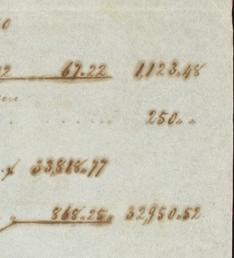 67.22 1,123.48
250..
33,818.77
868.25. 32,950.52